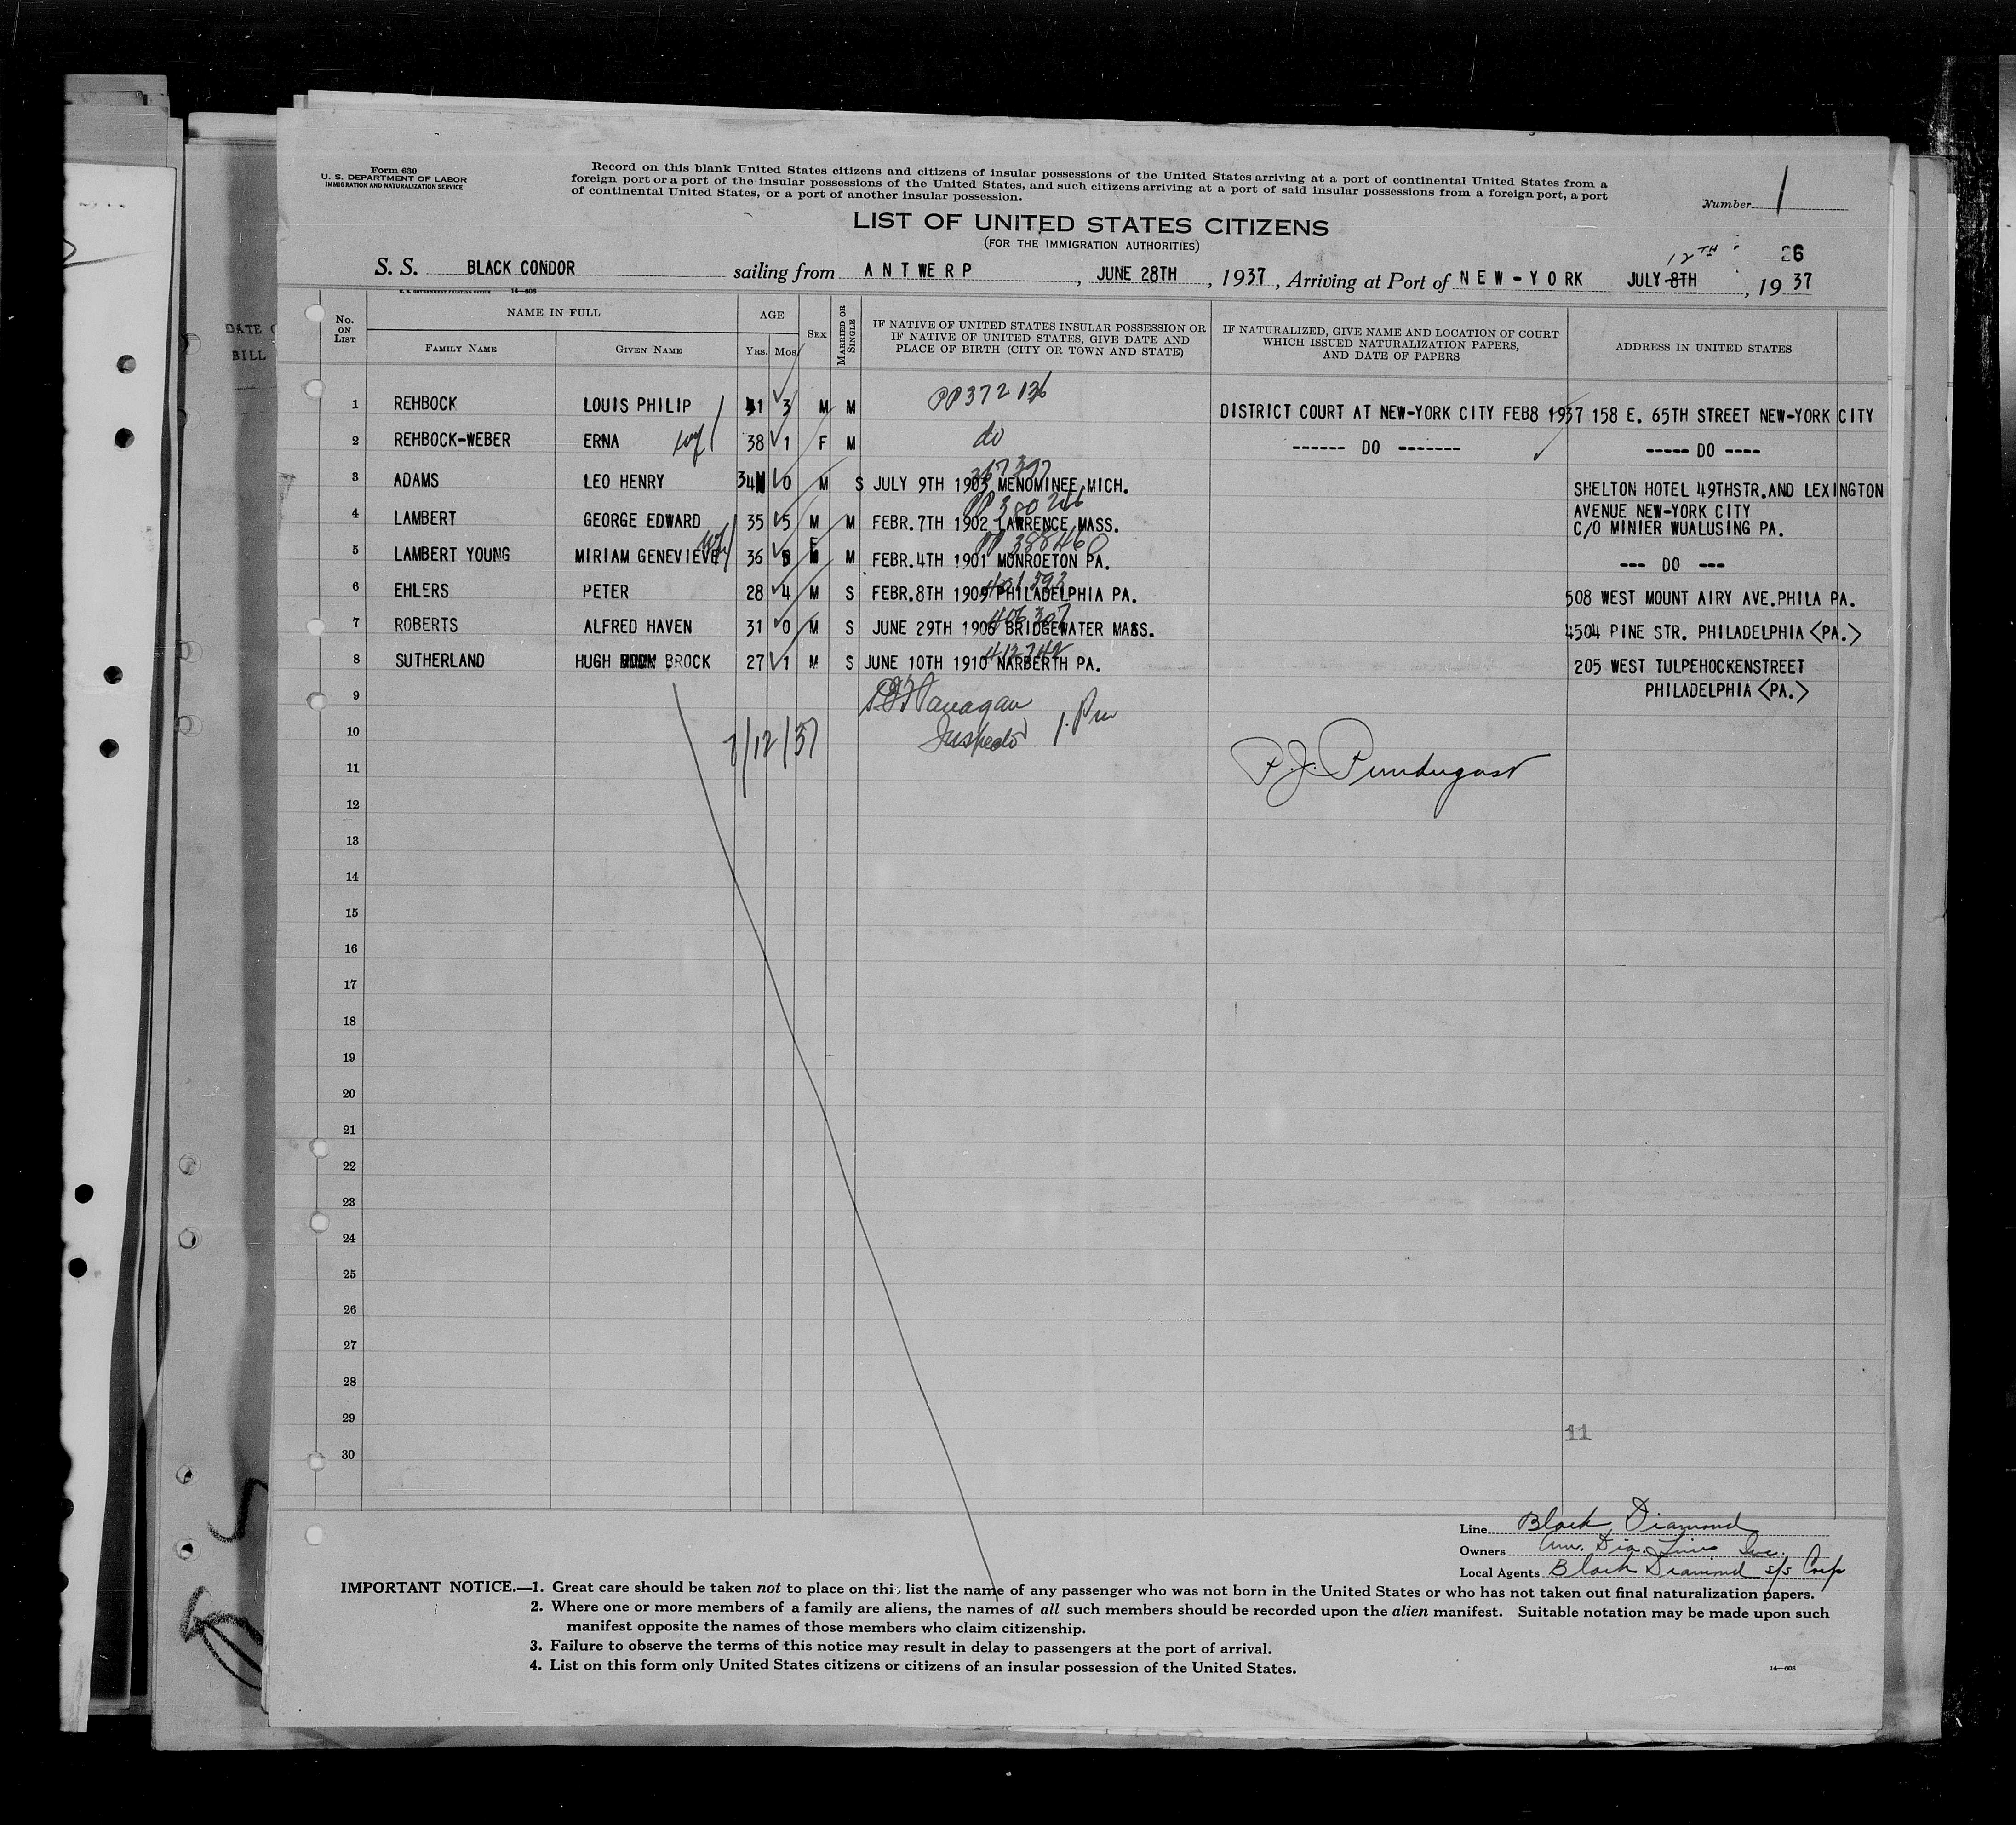 Form 630
U. S. DEPARTMENT OF LABOR
IMMIGRATION AND NATURALIZATION SERVICE
Record on this blank United States citizens and citizens of insular possessions of the United States arriving at a port of continental United States from a
foreign port or a port of the insular possessions of the United States, and such citizens arriving at a port of said insular possessions from a foreign port, a port
of continental United States, or a port of another insular possession.
Number 1
LIST OF UNITED STATES CITIZENS
(FOR THE IMMIGRATION AUTHORITIES)
12TH 26
S. S. BLACK CONDOR sailing from ANTWERP, JUNE 28TH, 1937, Arriving at Port of NEW-YORK JULY 8TH, 1937
U. S. GOVERNMENT PRINTING OFFICE 14—608
DATE
BILL
No. ON LIST
NAME IN FULL
FAMILY NAME
GIVEN NAME
AGE
YRS. MOS.
SEX
MARRIED OR SINGLE
IF NATIVE OF UNITED STATES INSULAR POSSESSION OR
IF NATIVE OF UNITED STATES, GIVE DATE AND
PLACE OF BIRTH (CITY OR TOWN AND STATE)
IF NATURALIZED, GIVE NAME AND LOCATION OF COURT
WHICH ISSUED NATURALIZATION PAPERS,
AND DATE OF PAPERS
ADDRESS IN UNITED STATES
1 REHBOCK LOUIS PHILIP 41 3 M M PP 372 136 DISTRICT COURT AT NEW-YORK CITY FEB8 1937 158 E. 65TH STREET NEW-YORK CITY
2 REHBOCK-WEBER ERNA wf 38 1 F M do ------ DO ------- ----- DO ----
3 ADAMS LEO HENRY 34 0 M S JULY 9TH 1903 MENOMINEE MICH. 367397 SHELTON HOTEL 49THSTR.AND LEXINGTON
AVENUE NEW-YORK CITY
4 LAMBERT GEORGE EDWARD 35 5 M M FEBR. 7TH 1902 LAWRENCE MASS. PP 380246 C/O MINIER WUALUSING PA.
5 LAMBERT YOUNG MIRIAM GENEVIEVE wf 36 5 F M FEBR. 4TH 1901 MONROETON PA. PP 388460 --- DO ---
6 EHLERS PETER 28 4 M S FEBR. 8TH 1909 PHILADELPHIA PA. 401593 508 WEST MOUNT AIRY AVE.PHILA PA.
7 ROBERTS ALFRED HAVEN 31 0 M S JUNE 29TH 1906 BRIDGEWATER MASS. 406307 4504 PINE STR. PHILADELPHIA <PA.>
8 SUTHERLAND HUGH BROCK 27 1 M S JUNE 10TH 1910 NARBERTH PA. 412742 205 WEST TULPEHOCKENSTREET
PHILADELPHIA <PA.>
9
Flanagan
10 7/12/37 Inspector
11
12
13
14
15
16
17
18
19
20
21
22
23
24
25
26
27
28
29
11
30
Line Black Diamond
Owners Am. Dia. Lines Inc.
Local Agents Black Diamond s/s Corp
IMPORTANT NOTICE.—1. Great care should be taken not to place on this list the name of any passenger who was not born in the United States or who has not taken out final naturalization papers.
2. Where one or more members of a family are aliens, the names of all such members should be recorded upon the alien manifest. Suitable notation may be made upon such
manifest opposite the names of those members who claim citizenship.
3. Failure to observe the terms of this notice may result in delay to passengers at the port of arrival.
4. List on this form only United States citizens or citizens of an insular possession of the United States.
14—608